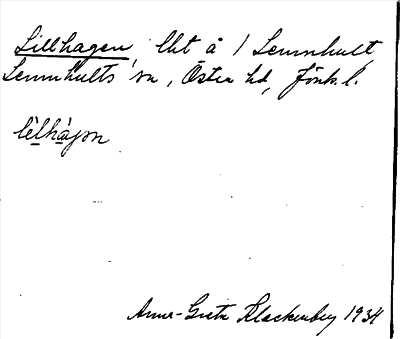 Lillhagen lht å / Lemnhult,
Lemnhults sn, Östra hd, Jönk. l.
lèlhàgən
Anna-Greta Klackenberg 1934